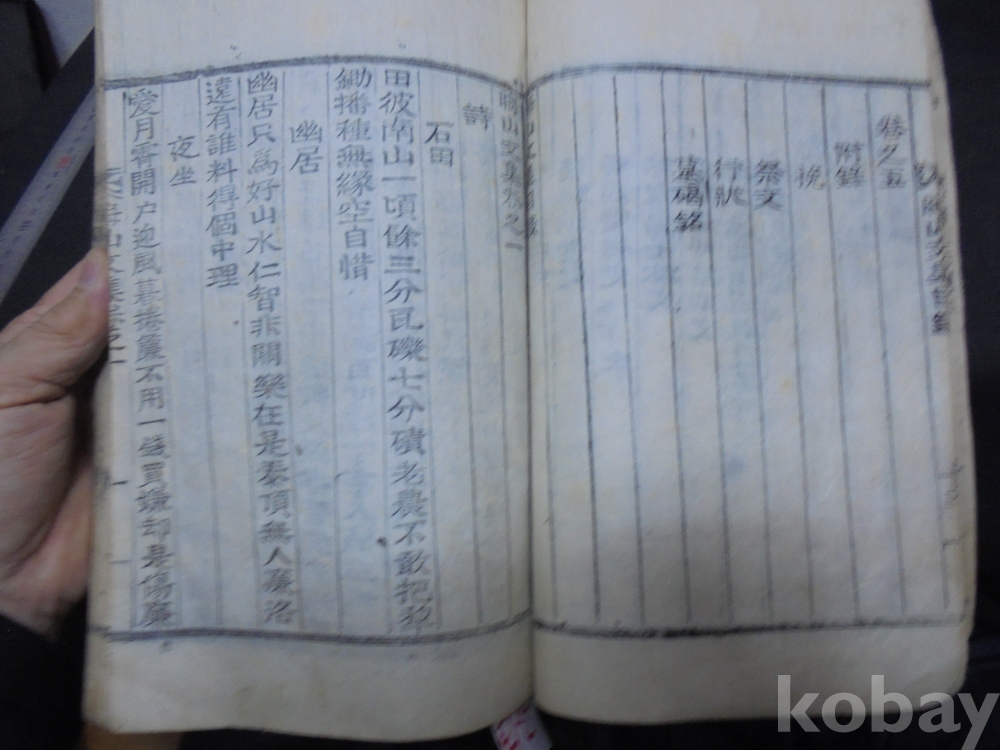 卷之五
附錄
挽
祭文
行狀
墓碣銘
山文集卷之一
詩
石田
田彼南山一頃餘三分瓦礫七分磧老農不敢把犂
鋤播種無緣空自惜
幽居
幽居只為好山水仁智非關樂在是泰頂無人濂洛
遠有誰料得個中理
夜坐
愛月宵開户迎風暮捲簾不用一錢買嫌却是傷廉
山文集卷之一
kobay